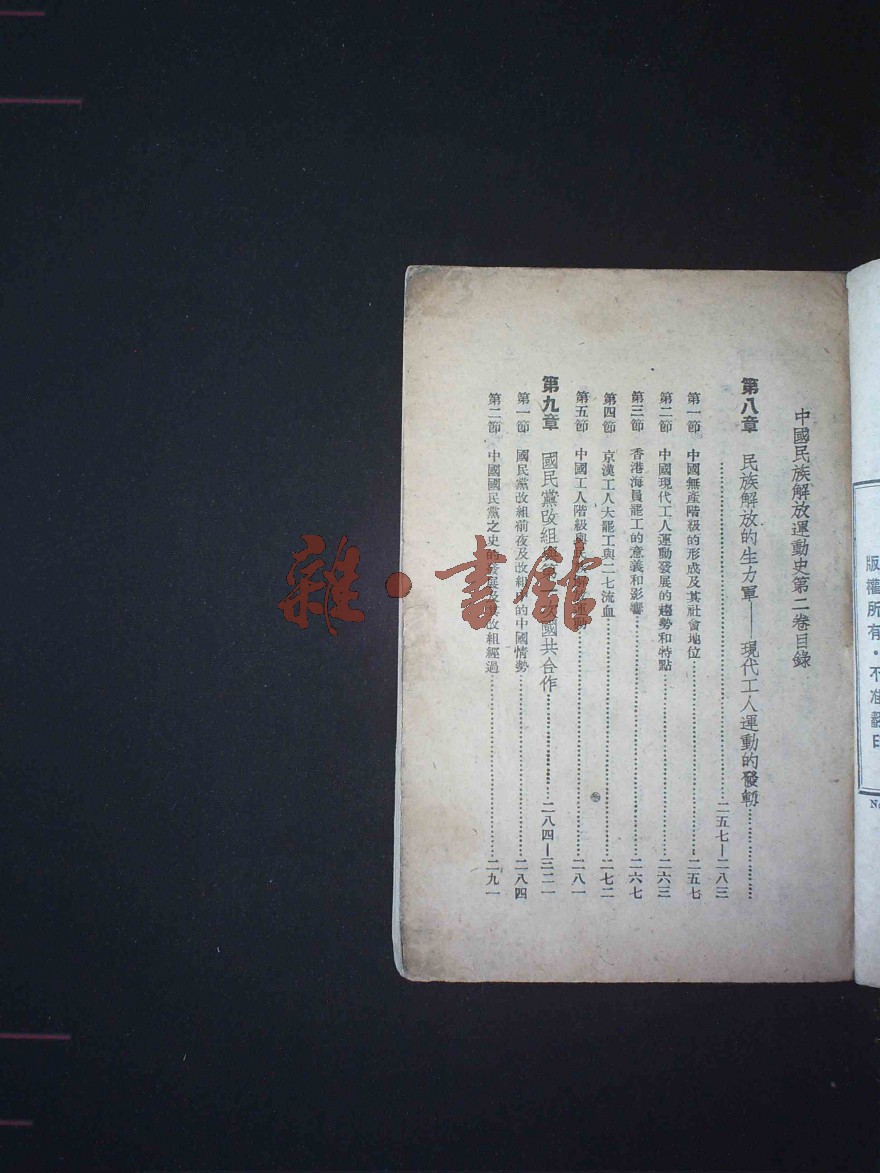 版權所有·不准翻印
中國民族解放運動史第二卷目錄
第八章 民族解放的生力軍——現代工人運動的發軔
二五七—二八三
第一節 中國無產階級的形成及其社會地位 二五七
第二節 中國現代工人運動發展的趨勢和特點 二六三
第三節 香港海員罷工的意義和影響 二六七
第四節 京漢工人大罷工與二七流血 二七二
第五節 中國工人階級與民族解放運動 二八一
第九章 國民黨改組與第一次國共合作 二八四—三二一
第一節 國民黨改組前夜及改組中的中國情勢 二八四
第二節 中國國民黨之史的發展及其改組經過 二九一
雜·書館